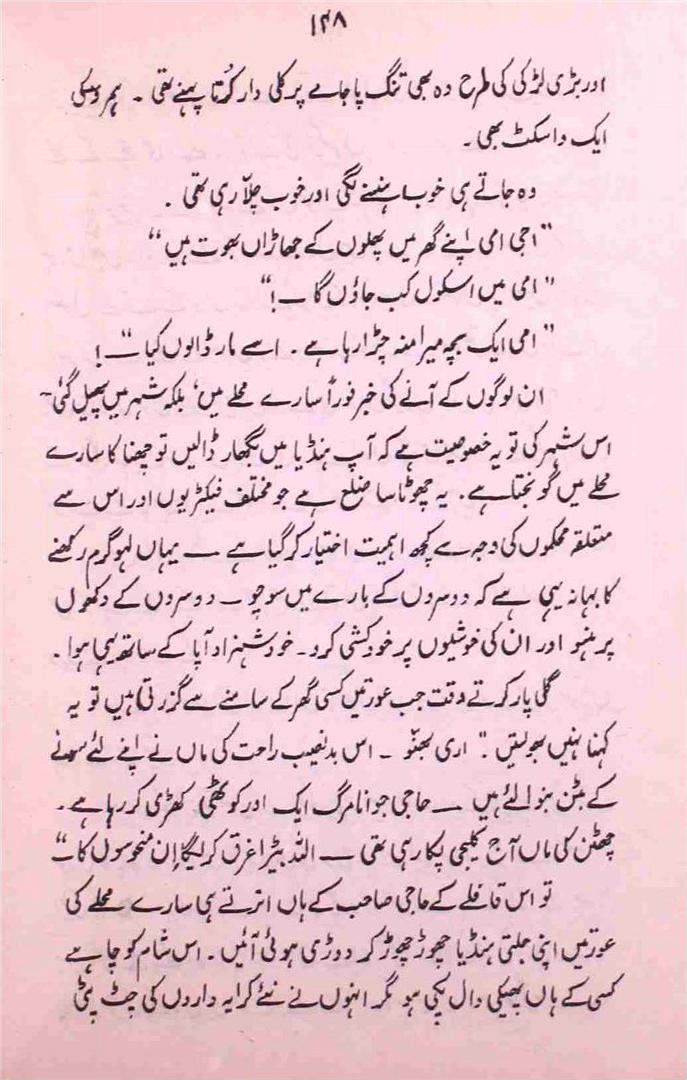 ۱۴۸
اور بڑی لڑکی کی طرح وہ بھی تنگ پاجامے پر کلی دار کُرتا پہنے تھی ۔ پھر اوسکی
ایک واسکٹ بھی ۔
وہ جاتے ہی خوب ہنسنے لگی اور خوب چلّا رہی تھی ۔
"اجی امی اپنے گھر میں پھلوں کے جھاڑاں بھوت ہیں"
"امی میں اسکول کب جاؤں گا ــ!"
"امی ایک بچہ میرا منہ چڑا رہا ہے ۔ اسے مار ڈالوں کیا" ــ!
ان لوگوں کے آنے کی خبر فوراً سارے محلے میں، بلکہ شہر میں پھیل گئی ـ
اس شہر کی تو یہ خصوصیت ہے کہ آپ ہنڈیا میں بگھار ڈالیں تو چھنا کا سارے
محلے میں گونجتا ہے ۔ یہ چھوٹا سا ضلع ہے جو مختلف فیکٹریوں اور اس سے
متعلقہ محکموں کی وجہ سے کچھ اہمیت اختیار کر گیا ہے ــ یہاں لہو گرم رکھنے
کا بہانہ یہی ہے کہ دوسروں کے بارے میں سوچو ــ دوسروں کے دکھوں
پر ہنسو اور ان کی خوشیوں پر خودکشی کرو ۔ خود شہزاد آپا کے ساتھ یہی ہوا ۔
گلی پار کرتے وقت جب عورتیں کسی گھر کے سامنے سے گزرتی ہیں تو یہ
کہنا نہیں بھولتیں ۔" اری بھنّو ۔ اس بدنصیب راحت کی ماں نے اپنے لئے سونے
کے بٹن بنوا لئے ہیں ــ حاجی جوانامرگ ایک اور کوٹھی کھڑی کر رہا ہے ۔
چھٹن کی ماں آج کلیجی پکا رہی تھی ــ اللہ بیڑا غرق کر لیگا اِن منحوسوں کا"ــ
تو اس قافلے کے حاجی صاحب کے ہاں اترتے ہی سارے محلے کی
عورتیں اپنی جلتی ہنڈیا چھوڑ چھوڑ کر دوڑی ہوئی آئیں ۔ اس شام کو چاہے
کسی کے ہاں پھیکی دال پکی ہو مگر انہوں نے نئے کرایہ داروں کی چٹ پٹی